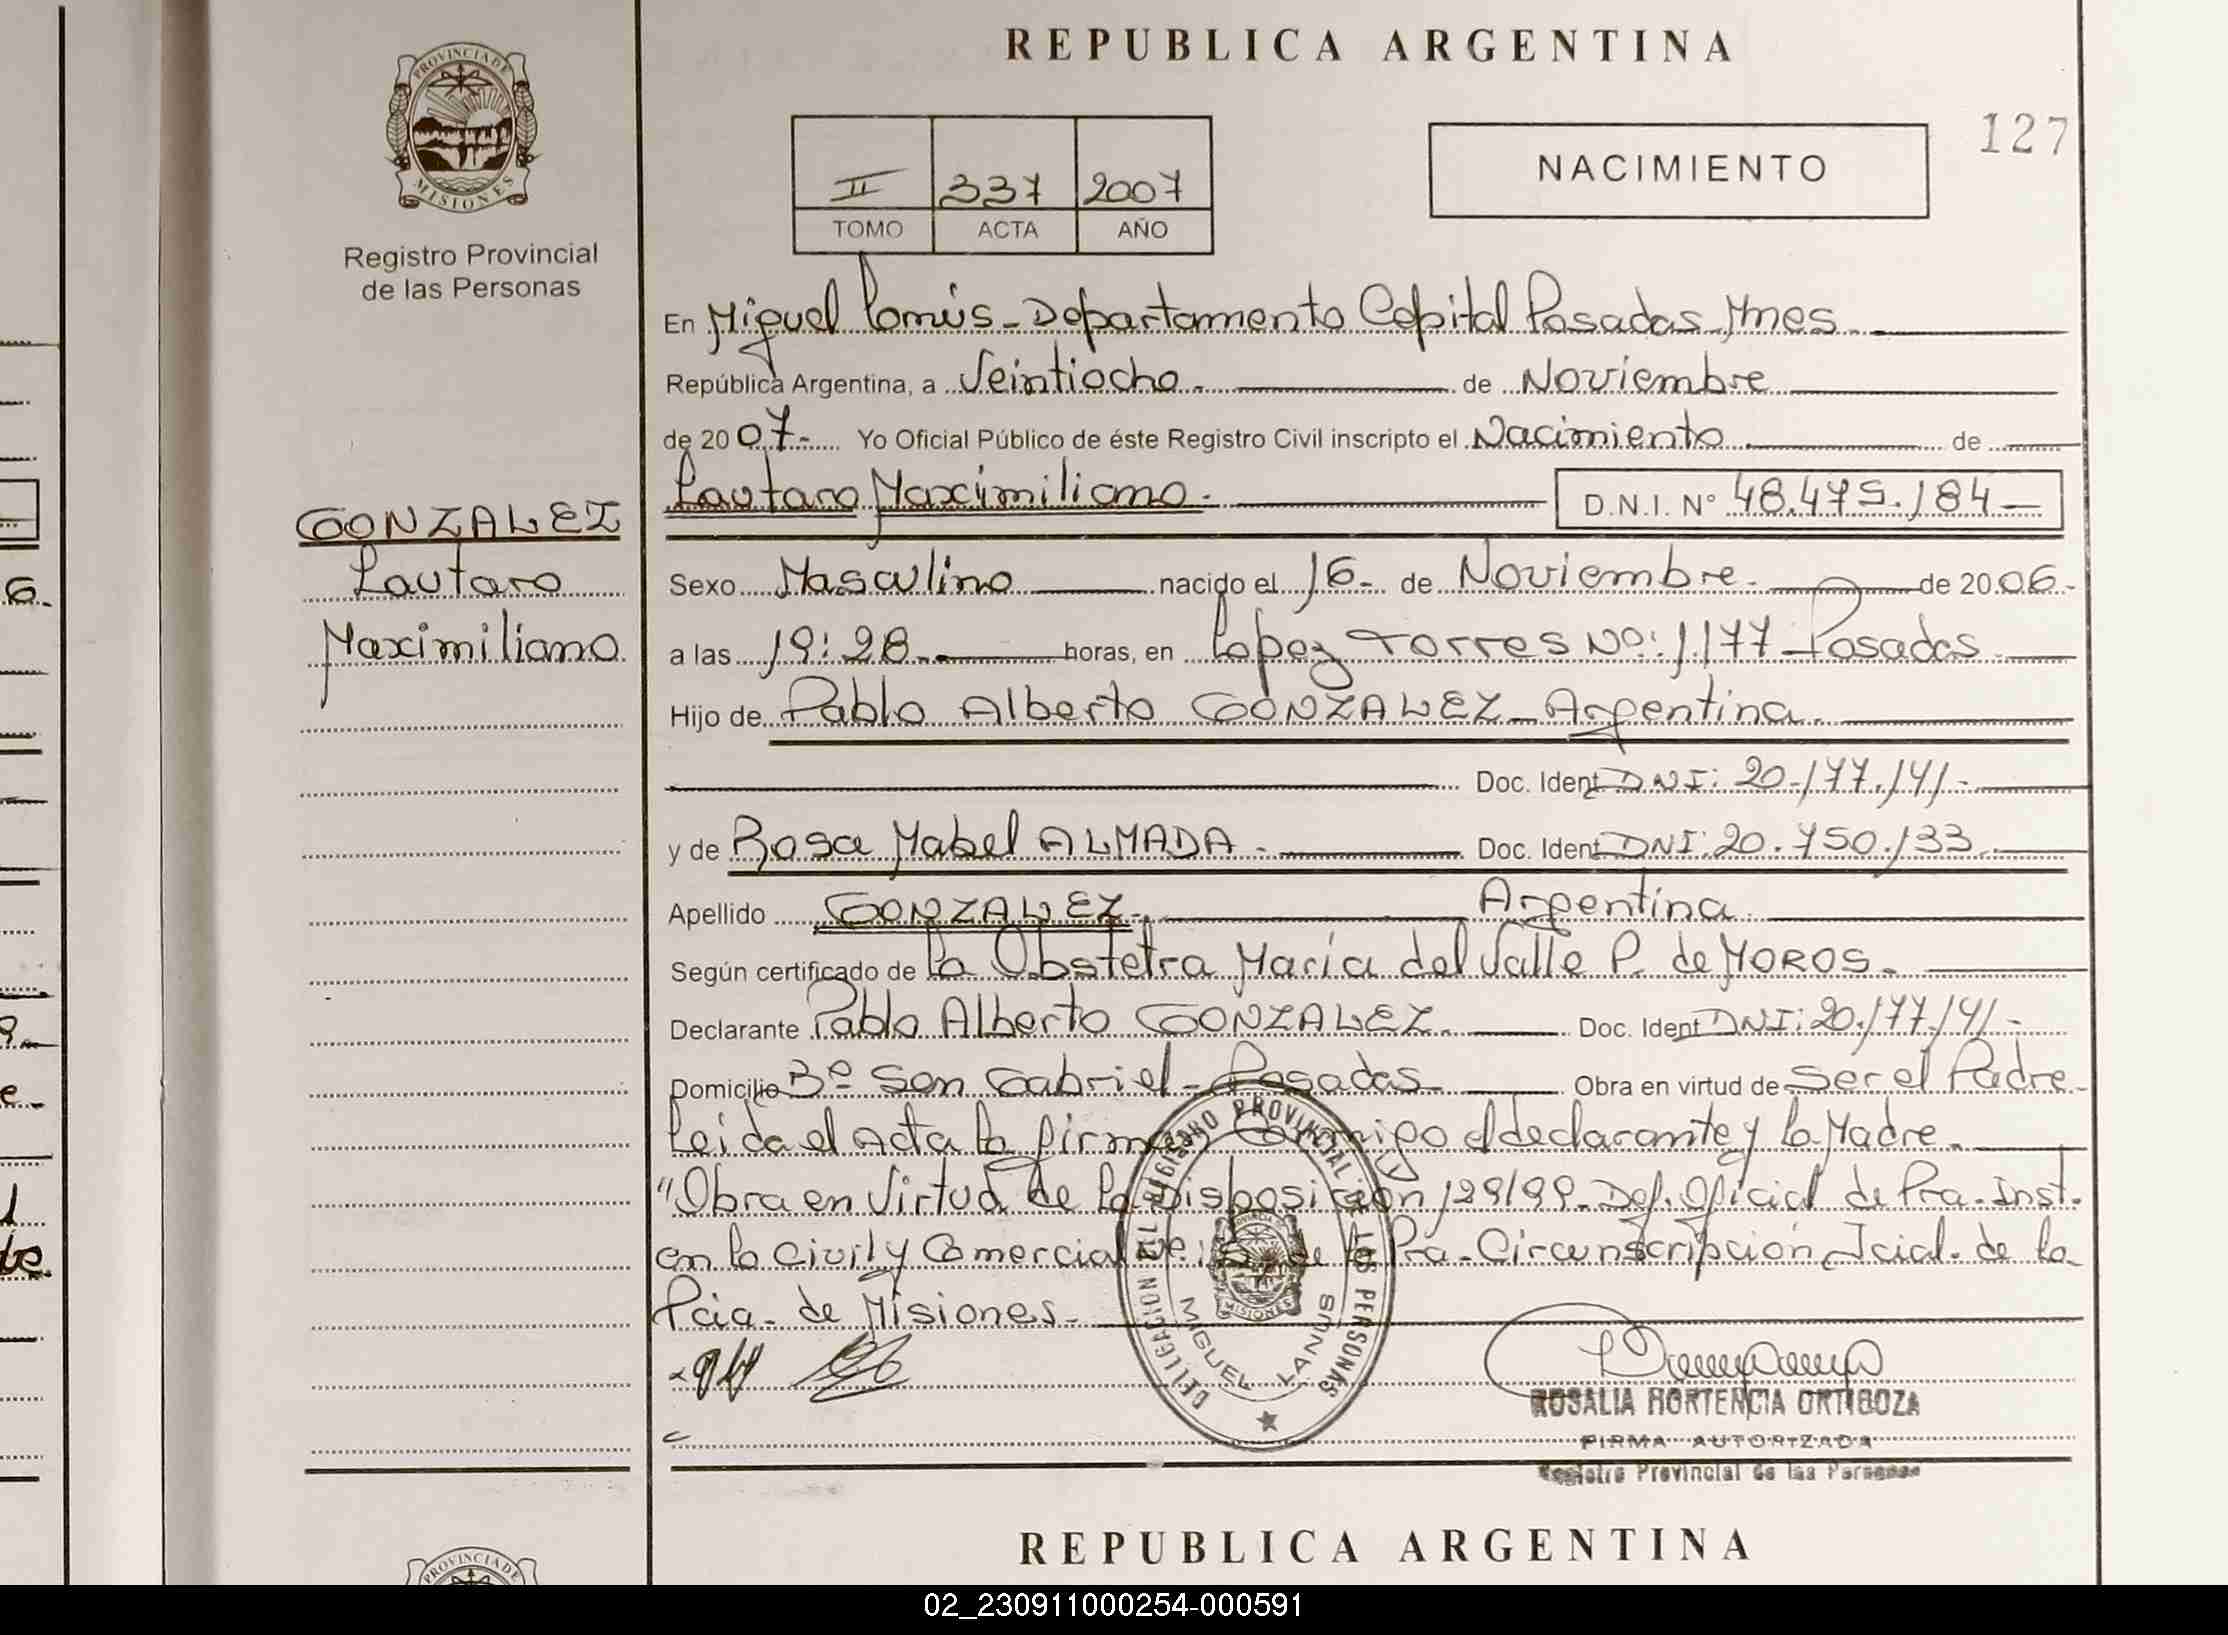 REPUBLICA ARGENTINA
PROVINCIA DE
MISIONES
Registro Provincial
de las Personas
II 337 2007
TOMO ACTA AÑO
NACIMIENTO
127
GONZALEZ
Lautaro
Maximiliano
En Miguel Lanús - Departamento Capital Posadas Mnes.
República Argentina, a Veintiocho. de Noviembre
de 2007.- Yo Oficial Público de éste Registro Civil inscripto el Nacimiento de
Lautaro Maximiliano. D.N.I. Nº 48.475.184
Sexo Masculino nacido el 16.- de Noviembre. de 2006.-
a las 19:28. horas, en Lopez Torres Nº: 1177 - Posadas
Hijo de Pablo Alberto GONZALEZ - Argentina.
Doc. Ident DNI: 20.177.141.-
y de Rosa Mabel ALMADA. Doc. Ident DNI: 20.750.133.
Apellido GONZALEZ. Argentina.
Según certificado de la Obstetra María del Valle P. de MOROS.
Declarante Pablo Alberto GONZALEZ. Doc. Ident DNI: 20.177.141.-
Domicilio Bº San Gabriel - Posadas Obra en virtud de Ser el Padre.
Leída el Acta la firman Conmigo el declarante y la Madre.
"Obra en Virtud de la Disposición 129/99 - Def. Oficial de Pra. Inst.
en lo Civil y Comercial de la Pra. Circunscripción Jcial. de la
Pcia. de Misiones.
DELEGACION REGISTRO PROVINCIAL DE LAS PERSONAS
MIGUEL LANUS
MISIONES
ROSALIA HORTENCIA ORTIGOZA
FIRMA AUTORIZADA
Registro Provincial de las Personas
REPUBLICA ARGENTINA
PROVINCIA DE
02_230911000254-000591